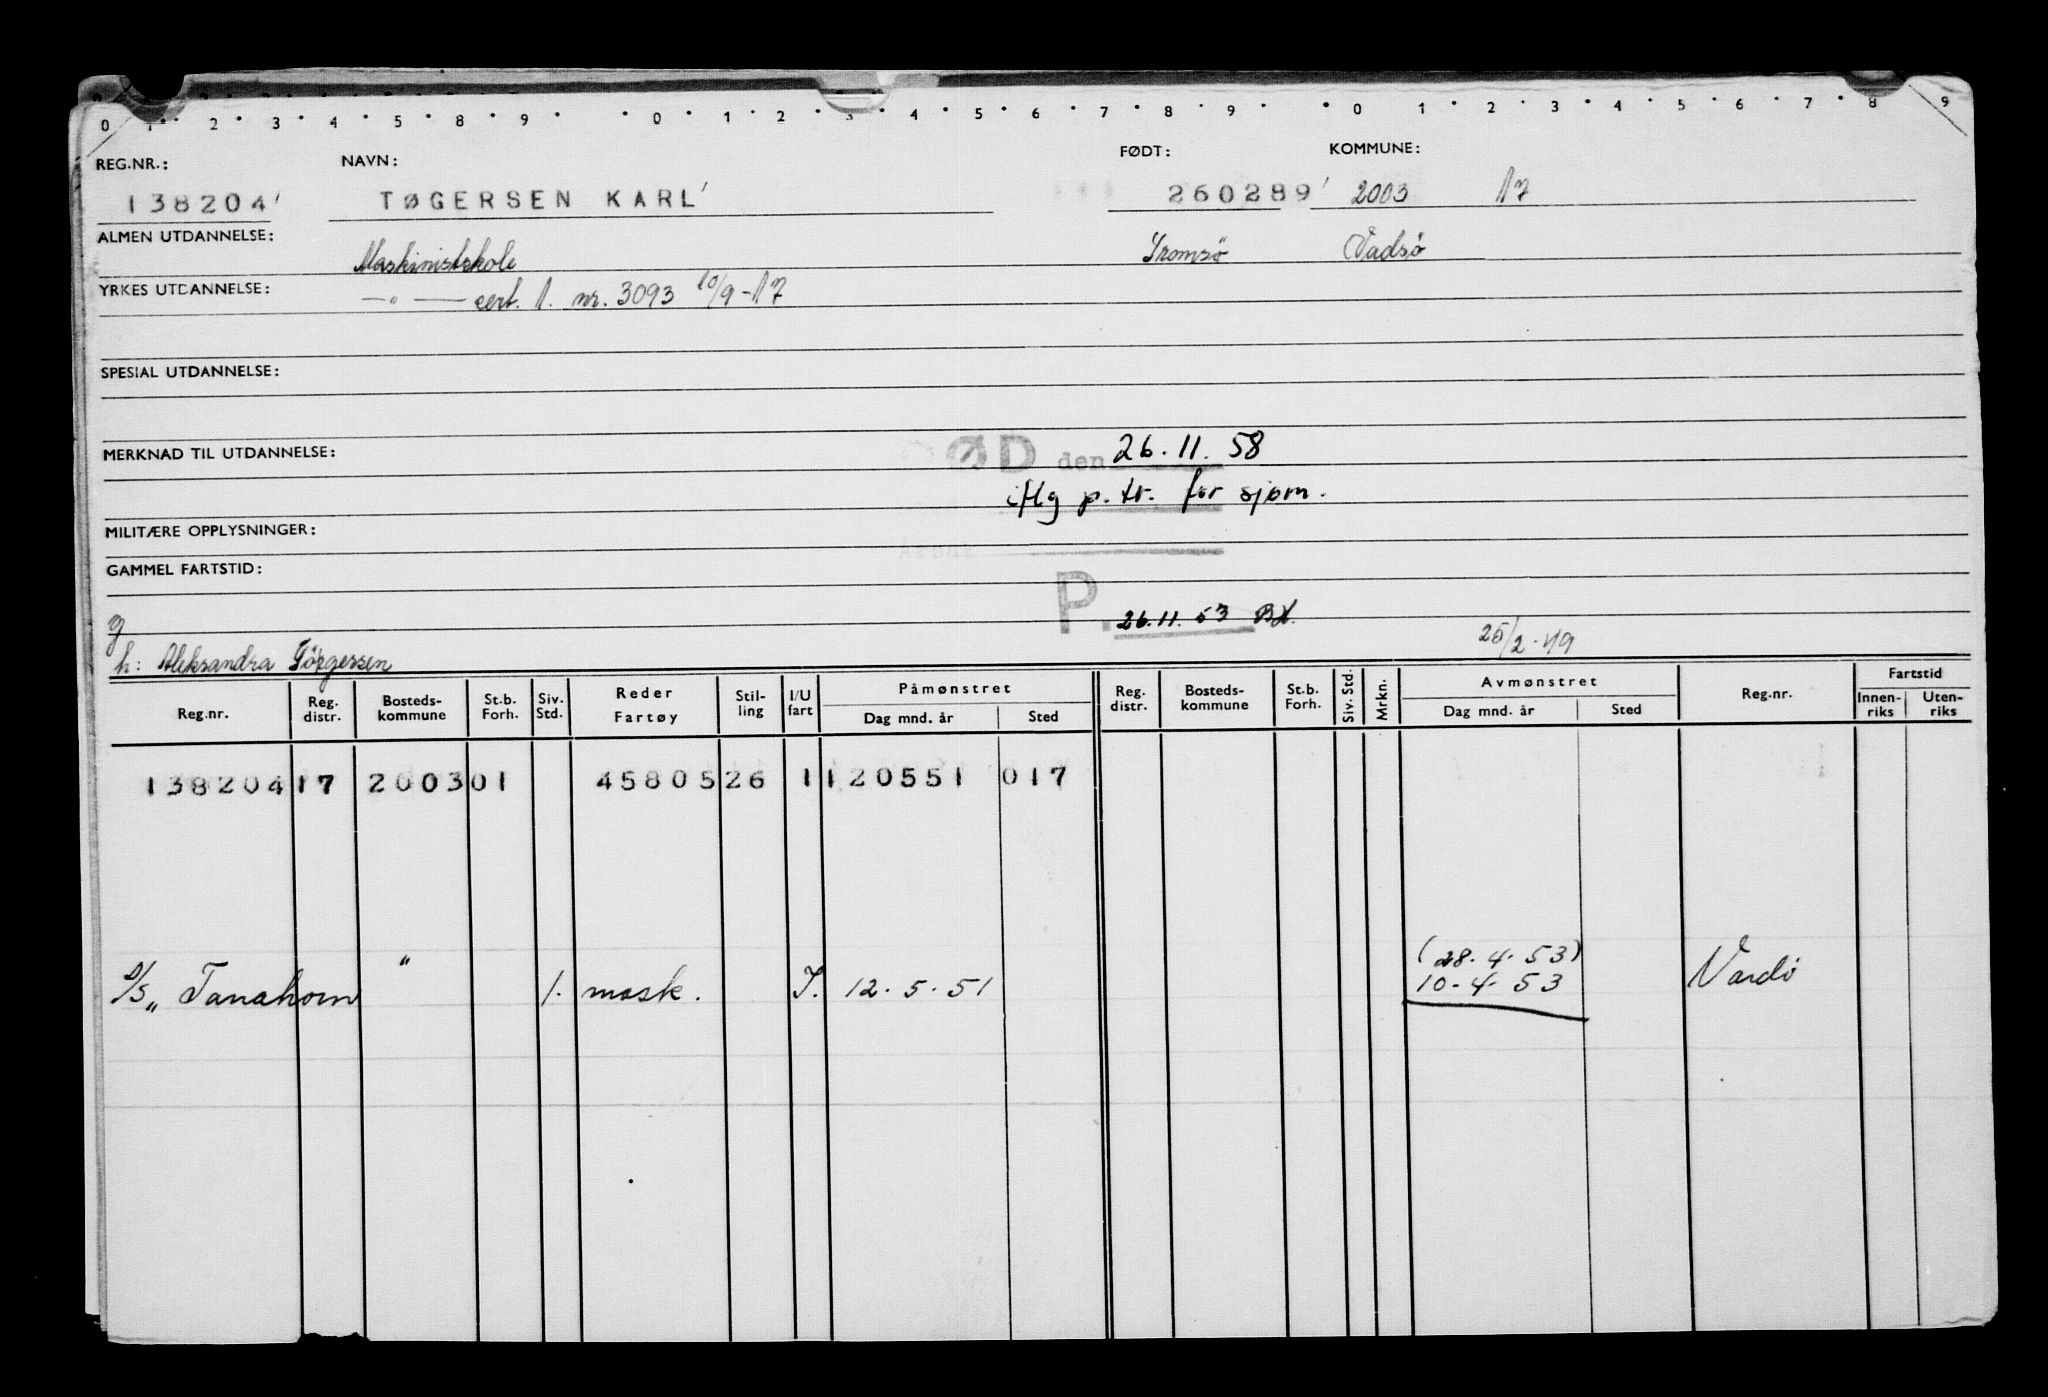 0 1 2 3 4 5 6 7 8 9 0 1 2 3 4 5 6 7 8 9 0 1 2 3 4 5 6 7 8 9
REG.NR.: NAVN: FØDT: KOMMUNE:
138204 TØGERSEN KARL 260289 2003 17
ALMEN UTDANNELSE: Maskinistskole Tromsö Vadsö
YRKES UTDANNELSE: —"— cert. 1. nr. 3093 10/9-17
SPESIAL UTDANNELSE:
MERKNAD TIL UTDANNELSE: DØD den 26.11.58
iflg p.tr. for sjøm.
MILITÆRE OPPLYSNINGER:
GAMMEL FARTSTID:
P. 26.11.53
g
h: Aleksandra Törgersen 25/2-49
Reg.nr. Reg. distr. Bosteds-kommune St.b. Forh. Siv. Std. Reder Fartøy Stil-ling I/U fart Påmønstret Dag mnd. år Sted Reg. distr. Bosteds-kommune St.b. Forh. Siv. Std. Mrkn. Avmønstret Dag mnd. år Sted Reg.nr. Fartstid Innen-riks Uten-riks
138204 17 2003 01 45805 26 1 120551 017
(28.4.53)
D/S „ Tanahorn " 1. mask. I. 12.5.51 10-4-53 Vardö